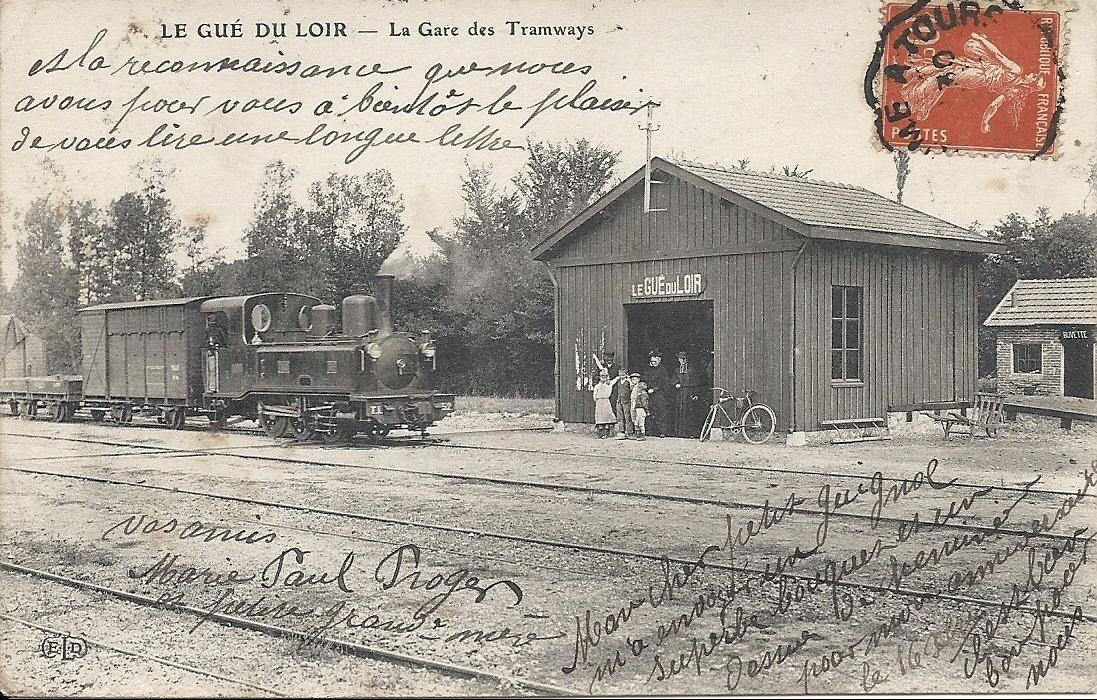 LE GUÉ DU LOIR — La Gare des Tramways
A la reconnaissance que nous
avons pour vous à bientôt le plaisir
de vous lire une longue lettre
ME A TOURS
POSTES
REPUBLIQUE FRANÇAISE
LE GUÉ DU LOIR
BUVETTE
vos amis
Marie Paul Roger
et petite grand-mère
Mon cher petit Guignol
m'a envoyer un
superbe bouquet et un
dessus de cheminée
pour mon anniversaire
le 16
c'est bien
bon pour
nous
ELD